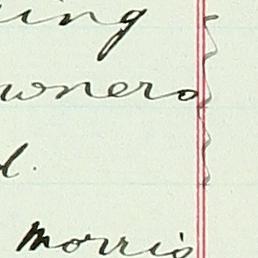 ing
wners
d.
Morris